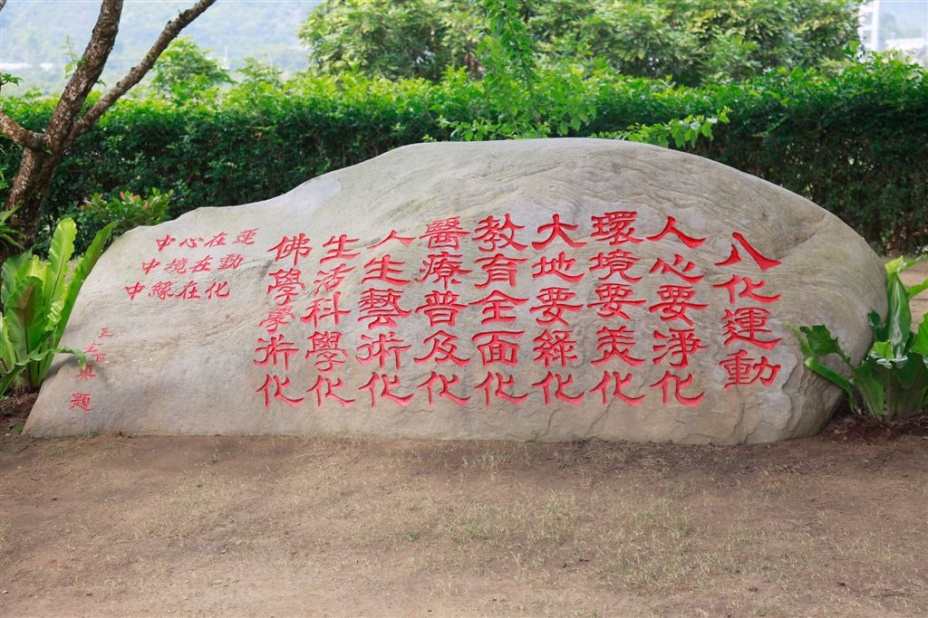 八化運動
人心要淨化
環境要美化
大地要綠化
教育全面化
醫療普及化
人生藝術化
生活科學化
佛學學術化
運在心中
動在境中
化在緣中
題